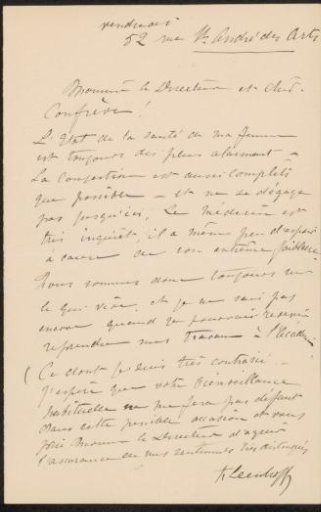 vendredi
52 rue St. André des Arts
Monsieur le Directeur et cher
Confrère!
L'état de la santé de ma femme
est toujours des plus alarmant –
La Congestion est aussi complète
que possible – et ne se dégage
pas jusqu'ici. Le médecin est
très inquiet, il a même peu d'espoir
à cause de son extrême faiblesse
Nous sommes donc toujours sur
le qui vive, et je ne sais pas
encore quand je pourrais revenir
reprendre mes travaux à l'Académie
(Ce dont je suis très contrarié. –
J'espère que votre bienveillance
habituelle ne me fera pas défaut
dans cette pénible occasion et vous
prie Monsieur le Directeur d'agréer
l'assurance de mes sentiments très distingués